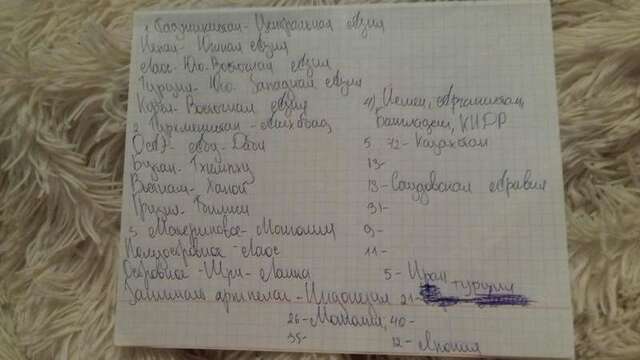 1 Таджикистан- Центральная Азия
Китай- Южная Азия
Лаос- Юго-Восточная Азия
Турция- Юго-Западная Азия
Корея- Восточная Азия
2. Туркменистан - Ашхабад
ОАЭ- Абу-Даби
Бутан- Тхимпху
Вьетнам- Ханой
Грузия- Тбилиси
3 Материковое- Монголия
Полуостровное -Лаос
Островное -Шри-Ланка
Занимает архипелаг - Индонезия
4) Йемен, Афганистан,
Бангладеш, КНДР
5. 72- Казахстан
13-
18- Саудовская Аравия
31-
9-
11-
5- Иран
Турция
21-
26- Монголия, 40-
35-
12- Япония